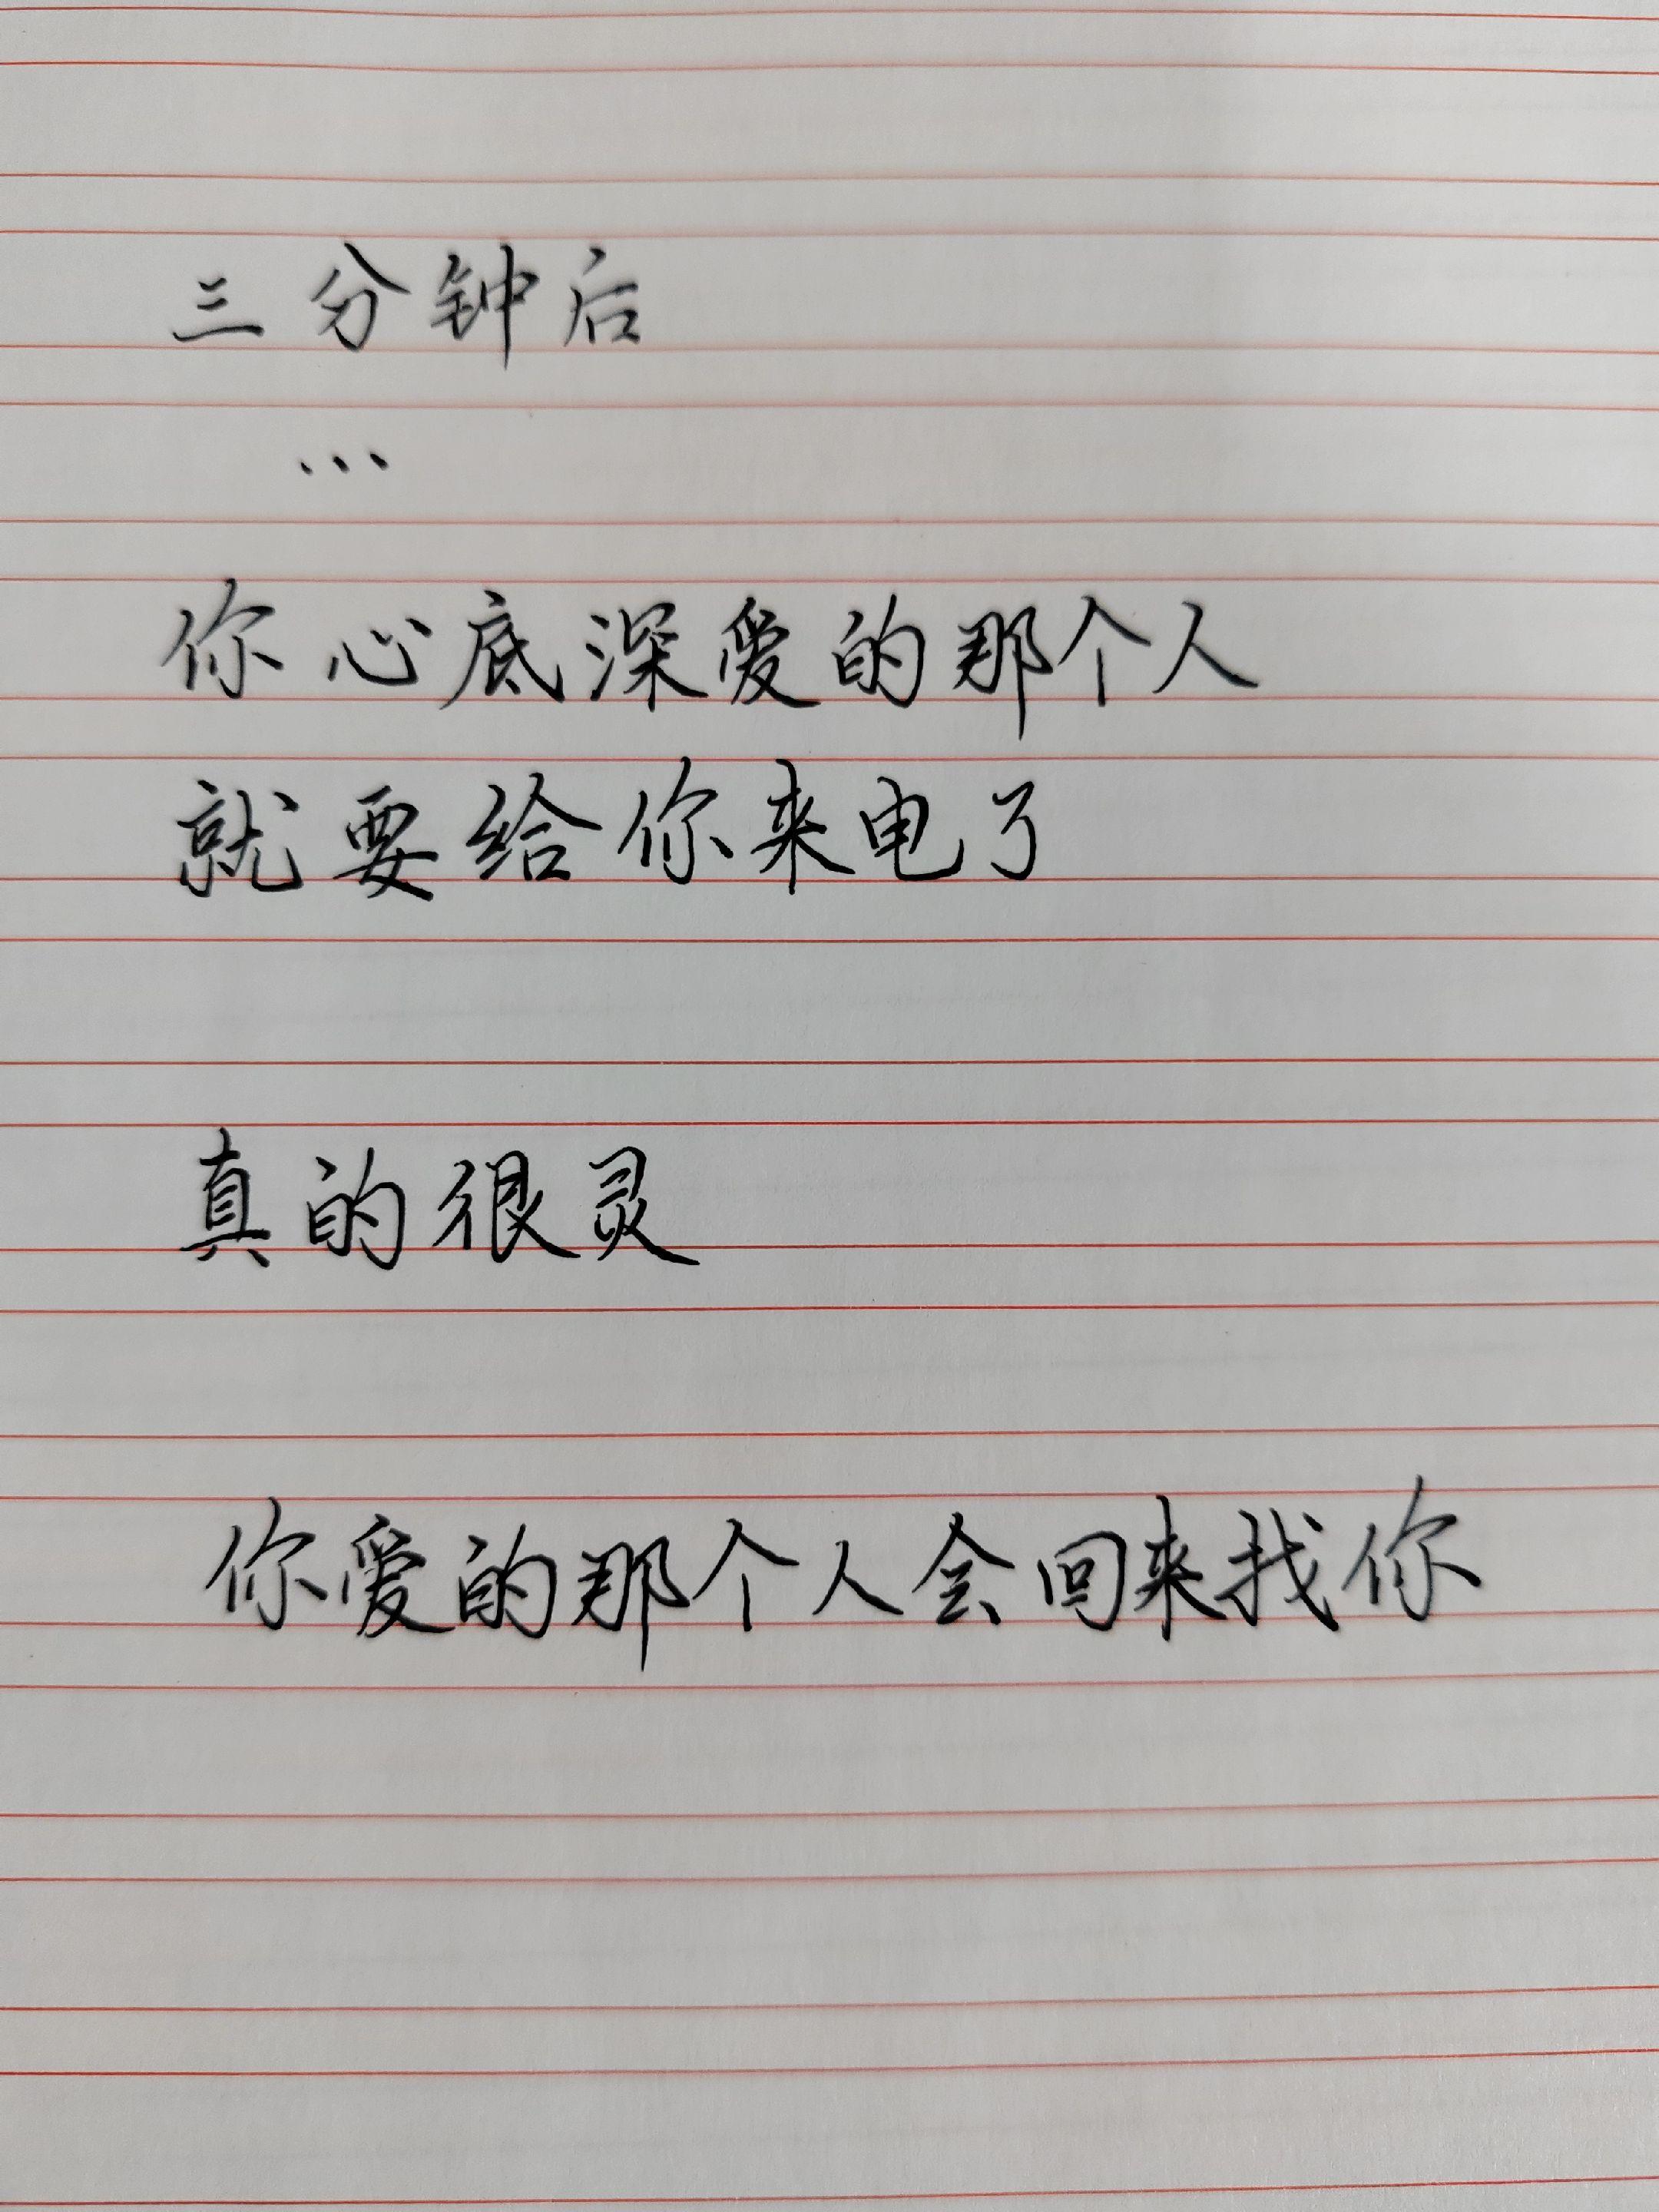 三分钟后
...
你心底深爱的那个人
就要给你来电了
真的很灵
你爱的那个人会回来找你